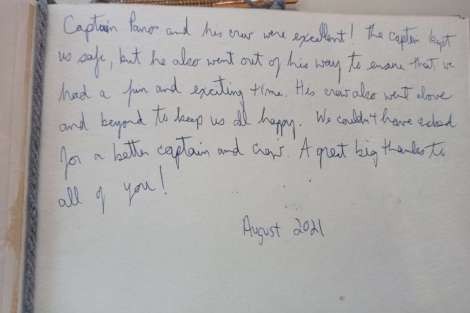 Captain Panos and his crew were excellent! The captain kept
us safe, but he also went out of his way to ensure that we
had a fun and exciting time. His crew also went above
and beyond to keep us all happy. We couldn't have asked
for a better captain and crew. A great big thanks to
all of you!
August 2021